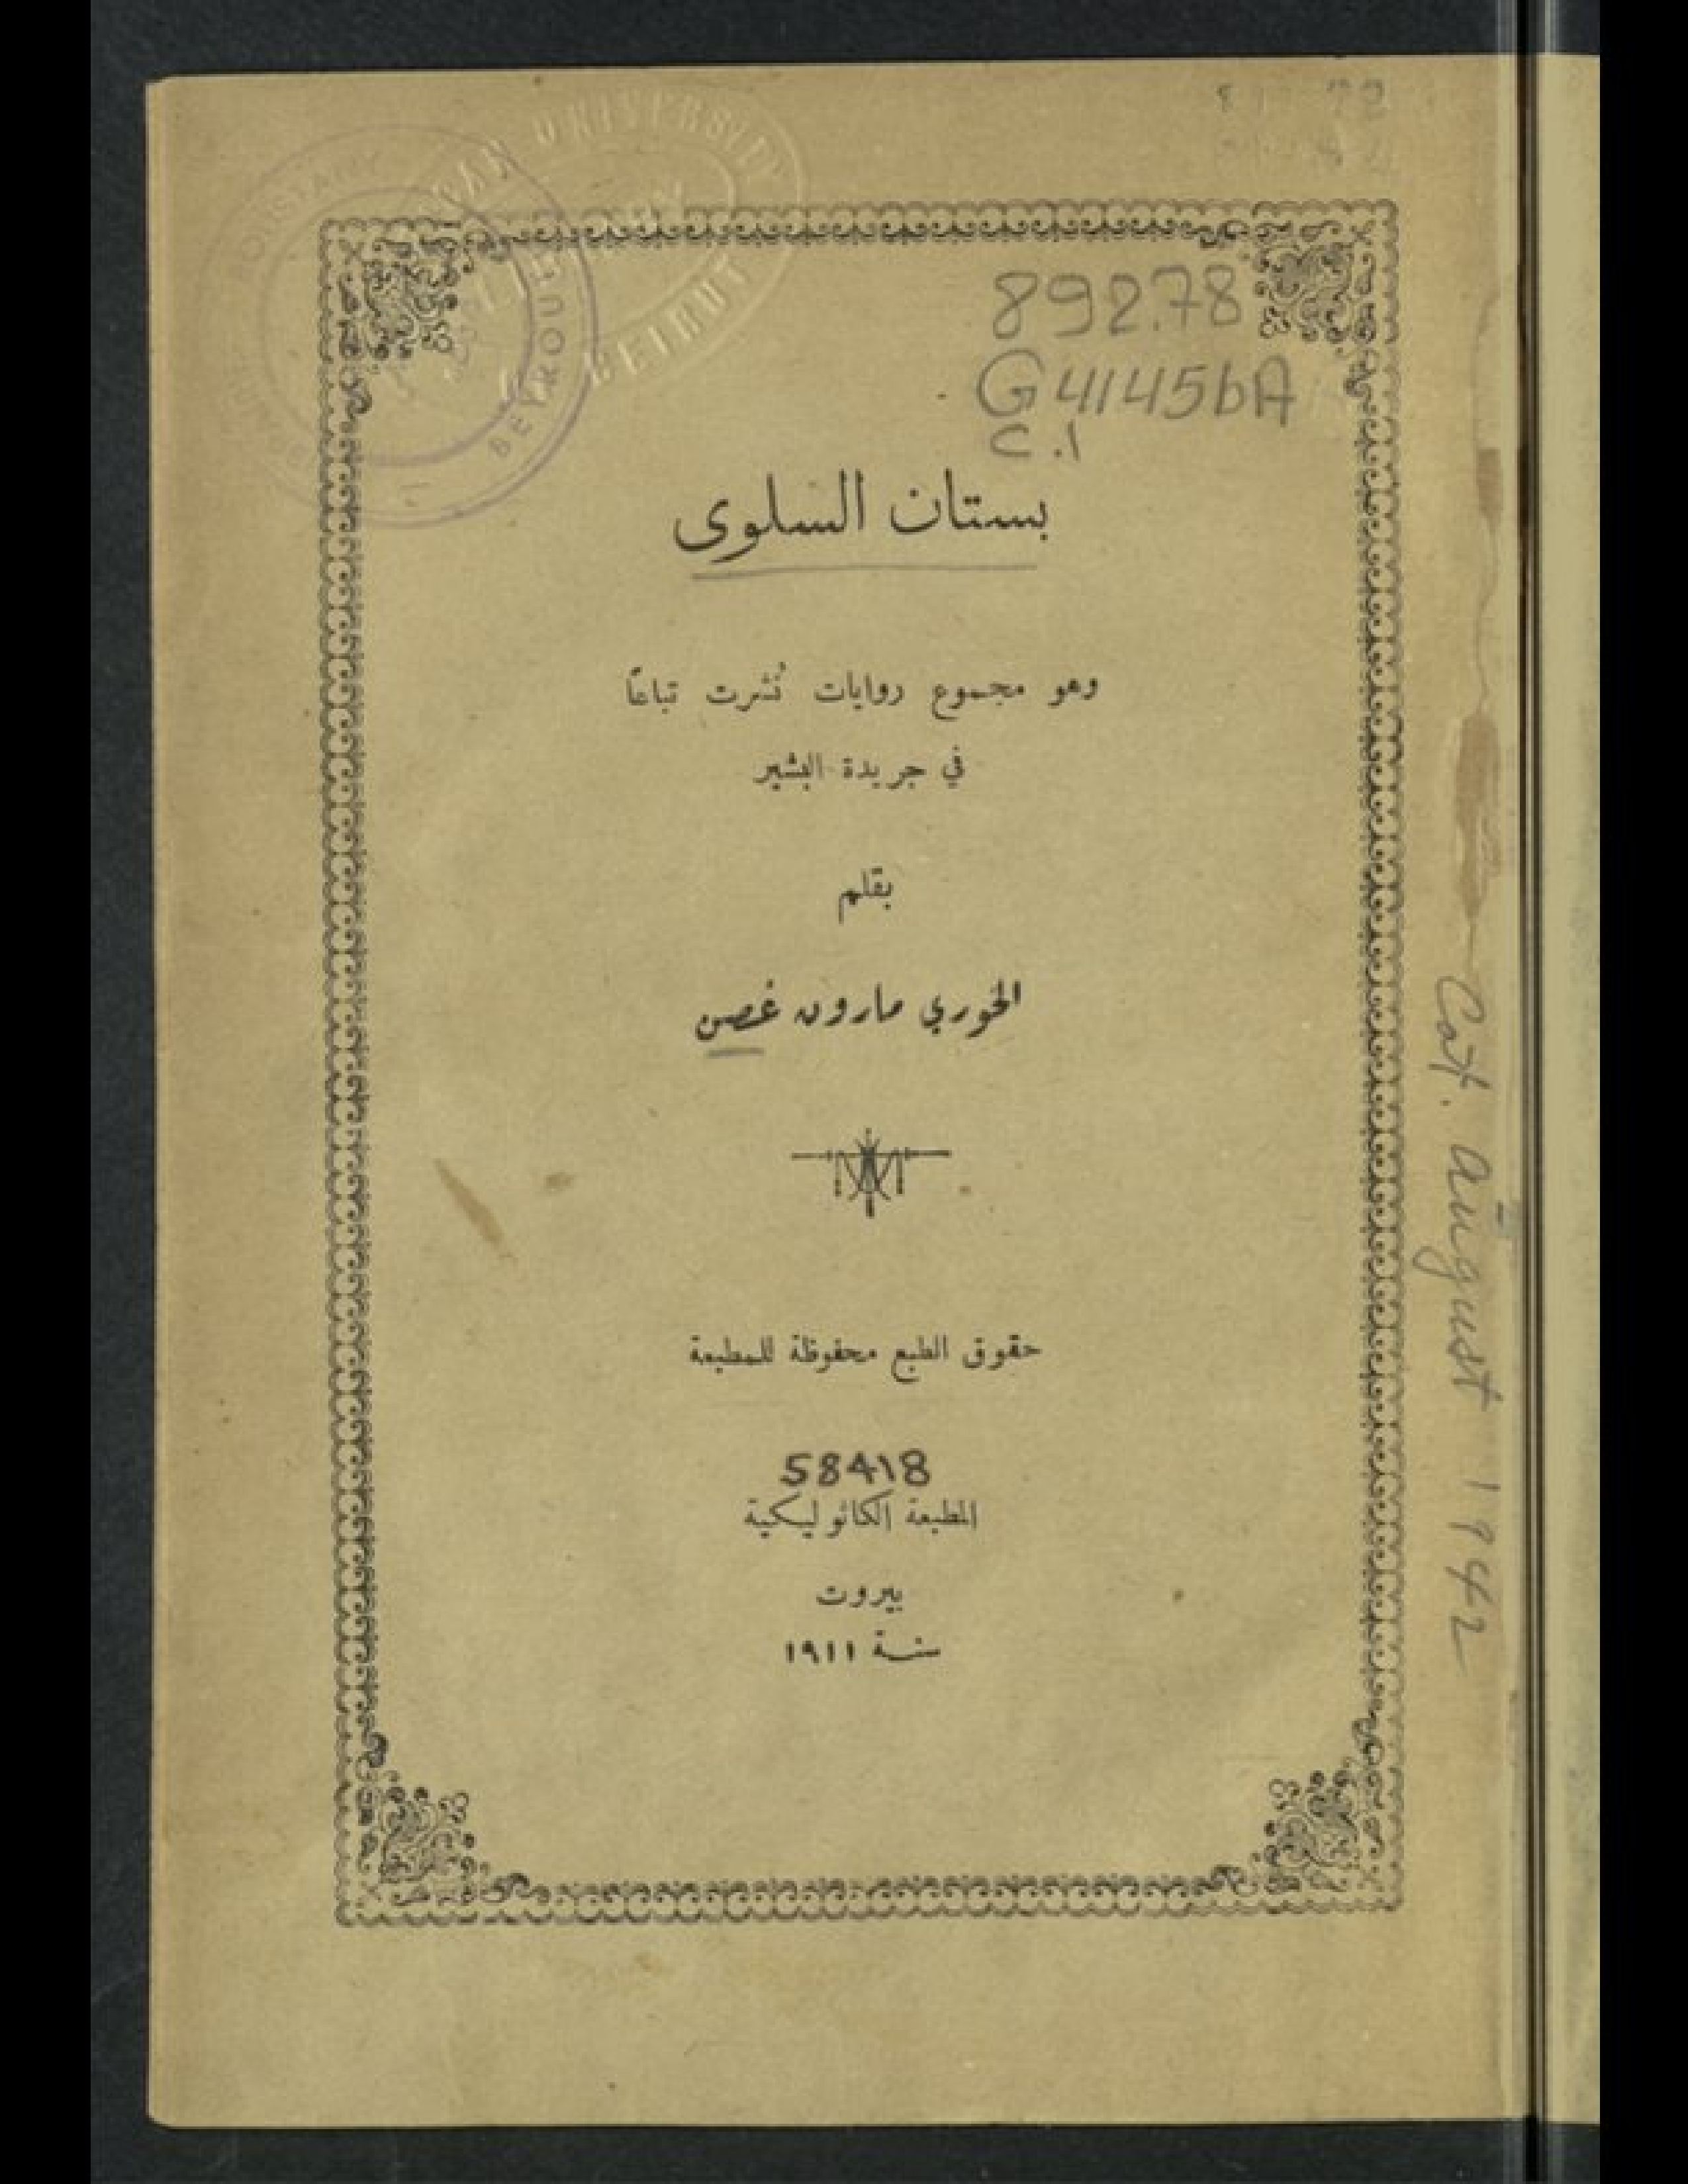 UNIVERSITY
BEIRUT
BEYROUTH
892.78
G4145bA
C.1
بستان السلوى
وهو مجموع روايات نُشرت تباعًا
في جريدة البشير
بقلم
الخوري مارون غصن
حقوق الطبع محفوظة للمطبعة
58418
المطبعة الكاثوليكية
بيروت
سنة ١٩١١
Cat. August 1942